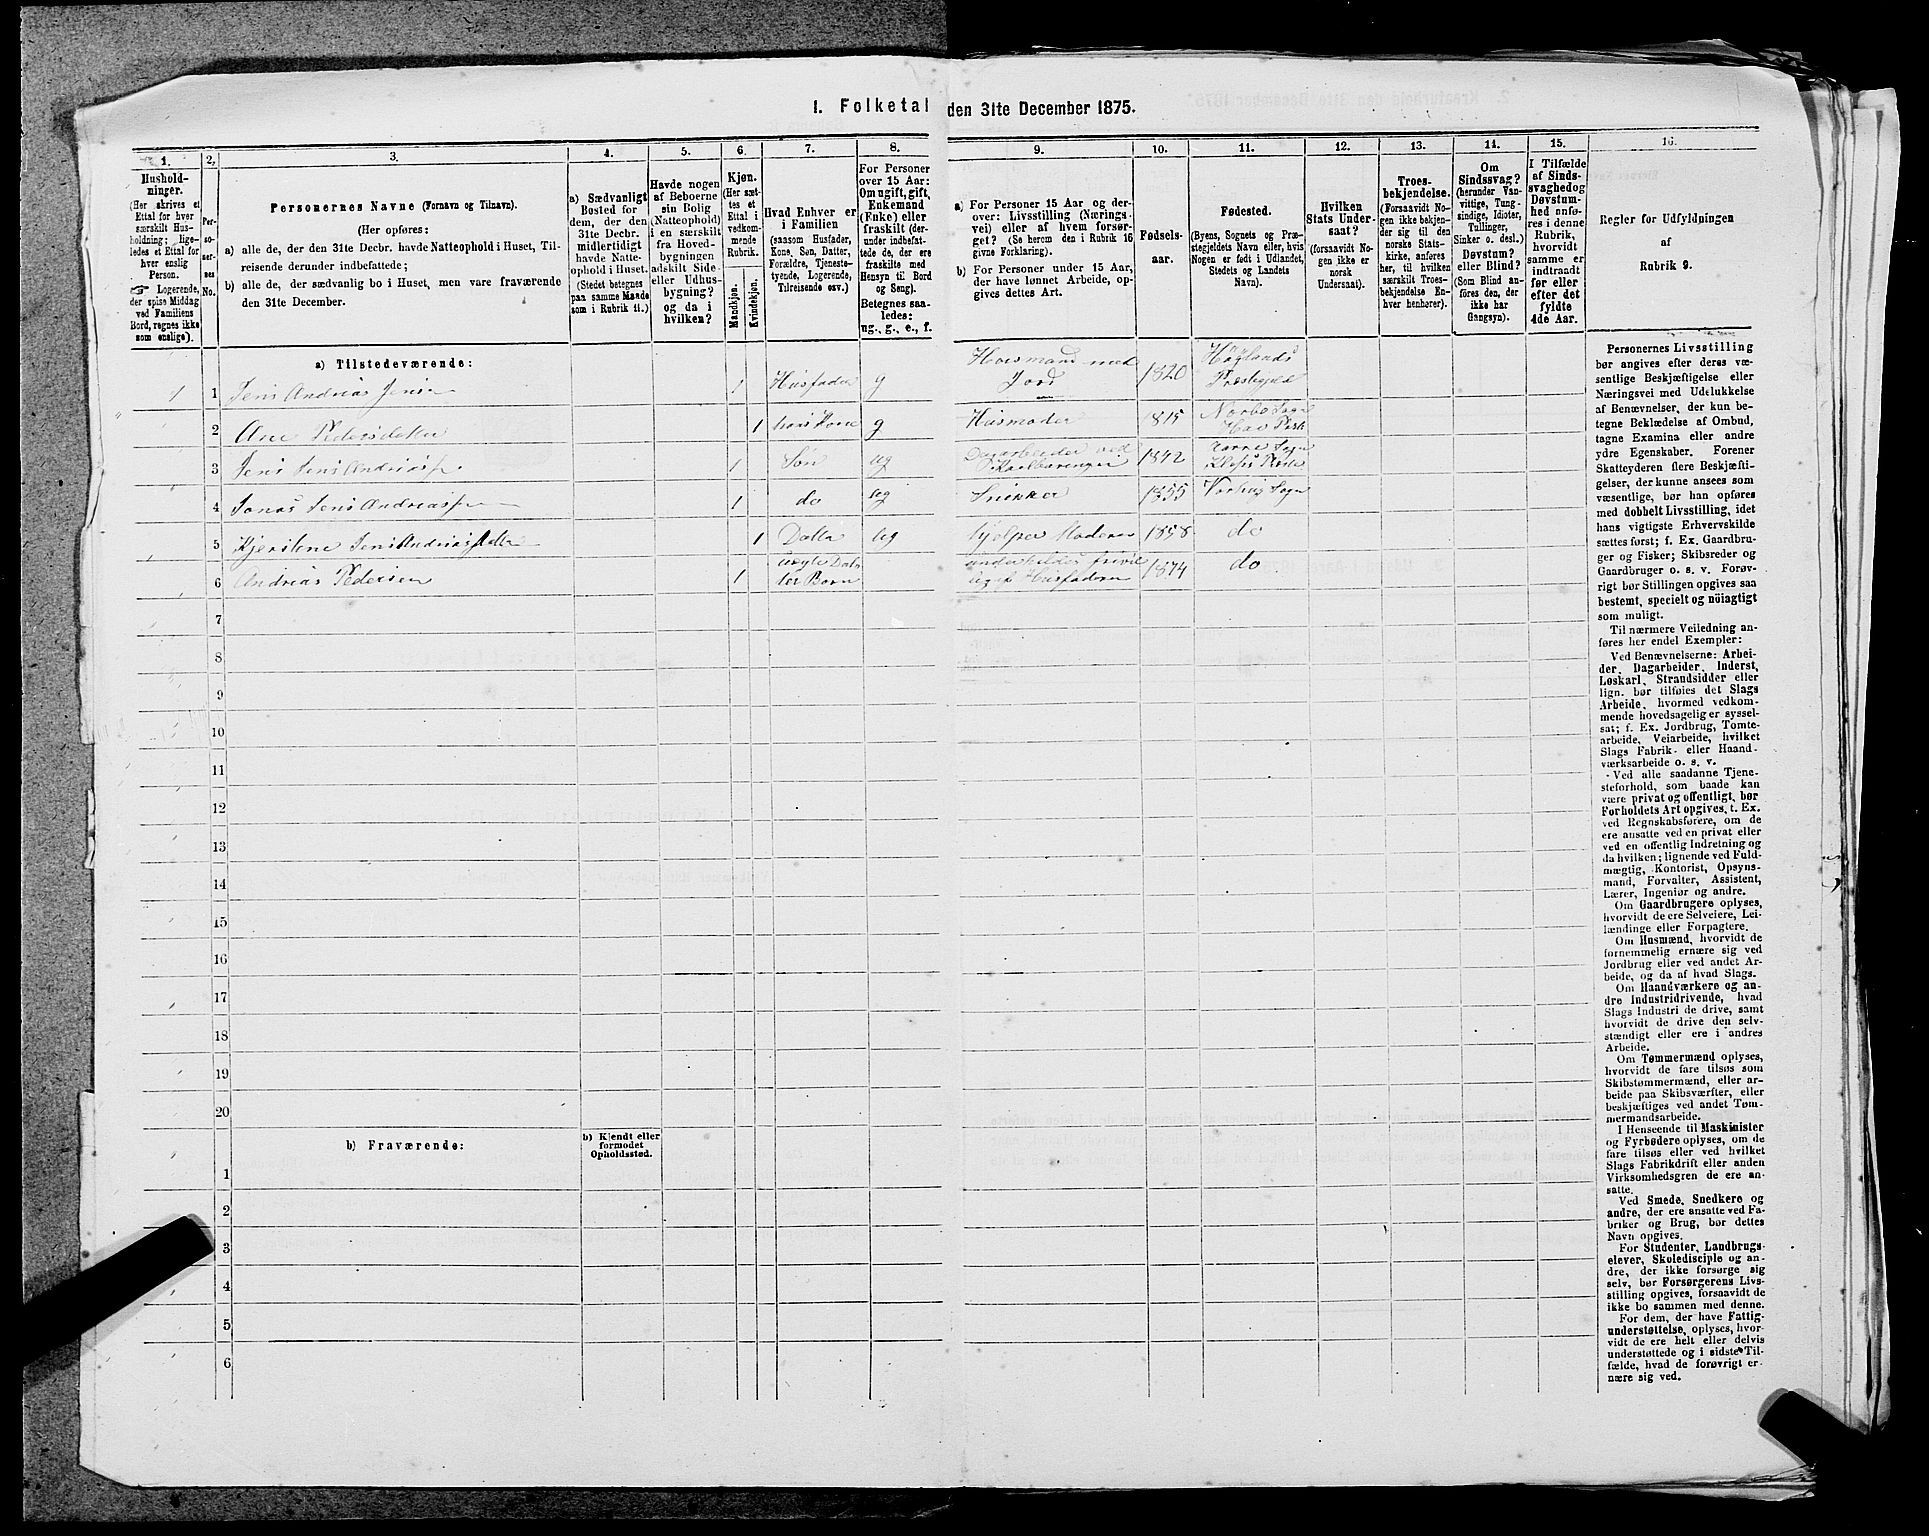 1. Folketal den 31te December 1875.
1.
2.
3.
4.
5.
6.
7.
8.
9.
10.
11.
12.
13.
14.
15.
16.
Hushold-
ninger.
(Her skrives et
Ettal for hver
særskilt Hus-
holdning; lige-
ledes et Ettal for
hver enslig
Person.
☞ Logerende,
der spise Middag
ved Familiens
Bord, regnes ikke
som enslige).
Per-
so-
ner-
nes
No.
Personernes Navne (Fornavn og Tilnavn).
(Her opføres:
a) alle de, der den 31te Decbr. havde Natteophold i Huset, Til-
reisende derunder indbefattede;
b) alle de, der sædvanlig bo i Huset, men vare fraværende
den 31te December.
a) Sædvanligt
Bosted for
dem, der den
31te Decbr.
midlertidigt
havde Natte-
ophold i Huset.
(Stedet betegnes
paa samme Maade
som i Rubrik 11.)
Havde nogen
af Beboerne
sin Bolig
(Natteophold)
i en særskilt
fra Hoved-
bygningen
adskilt Side-
eller Udhus-
bygning?
og da i
hvilken?
Kjøn.
(Her sæt-
tes et
Ettal i
vedkom-
mende
Rubrik.
Mandkjøn.
Kvindekjøn.
Hvad Enhver er
i Familien
(saasom Husfader,
Kone, Søn, Datter,
Forældre, Tjeneste-
tyende, Logerende,
Tilreisende osv.)
For Personer
over 15 Aar:
Om ugift, gift,
Enkemand
(Enke) eller
fraskilt (der-
under indbefat-
tede de, der ere
fraskilte med
Hensyn til Bord
og Seng).
Betegnes saa-
ledes:
ug., g., e., f.
a) For Personer 15 Aar og der-
over: Livsstilling (Nærings-
vei) eller af hvem forsør-
get? (Se herom den i Rubrik 16
givne Forklaring).
b) For Personer under 15 Aar,
der have lønnet Arbeide, op-
gives dettes Art.
Fødsels-
aar.
Fødested.
(Byens, Sognets og Præ-
stegjeldets Navn eller, hvis
Nogen er født i Udlandet,
Stedets og Landets
Navn).
Hvilken
Stats Under-
saat?
(forsaavidt No-
gen ikke er
norsk
Undersaat).
Troes-
bekjendelse.
(Forsaavidt No-
gen ikke bekjen-
der sig til den
norske Stats-
kirke, anføres
her, til hvilken
særskilt Troes-
bekjendelse En-
hver henhører).
Om
Sindssvag?
(herunder Van-
vittige, Tung-
sindige, Idioter,
Tullinger,
Sinker o. desl.)
Døvstum?
eller Blind?
(Som Blind an-
føres den, der
ikke har
Gangsyn).
I Tilfælde
af Sinds-
svaghed og
Døvstum-
hed anfø-
res i denne
Rubrik,
hvorvidt
samme er
indtraadt
før eller
efter det
fyldte
4de Aar.
Regler for Udfyldningen
af
Rubrik 9.
a) Tilstedeværende:
1 1 Jens Andreas Jensen 1 Husfader g Huusmand med Jord 1820 Høylands Prestegjeld
2 Ane Pedersdatter 1 hans Kone g Husmoder 1815 Sogn
3 Jens Jens Andreass 1 Søn ug Dagarbeider ved 1842 Sogn
4 Jonas Jens Andreass 1 do ug Snikker 1855 Sogn
5 Kjerstene Jens Andreas 1 Datter ug hjelper Moderen 1858 do
6 Andreas Pedersen 1 Datter Barn underholdes af Husfaderen 1874 do
7
8
9
10
11
12
13
14
15
16
17
18
19
20
b) Fraværende:
b) Kjendt eller
formodet
Opholdssted.
1
2
3
4
5
6
Personernes Livsstilling
bør angives efter deres væ-
sentlige Beskjæftigelse eller
Næringsvei med Udelukkelse
af Benævnelser, der kun be-
tegne Beklædelse af Ombud,
tagne Examina eller andre
ydre Egenskaber. Forener
Skatteyderen flere Beskjæfti-
gelser, der kunne ansees som
væsentlige, bør han opføres
med dobbelt Livsstilling, idet
hans vigtigste Erhvervskilde
sættes først; f. Ex. Gaardbru-
ger og Fisker; Skibsreder og
Gaardbruger o. s. v. Forøv-
rigt bør Stillingen opgives saa
bestemt, specielt og nöiagtigt
som muligt.
Til nærmere Veiledning an-
føres her endel Exempler:
Ved Benævnelserne: Arbei-
der, Dagarbeider, Inderst,
Løskarl, Strandsidder eller
lign. bør tilføies det Slags
Arbeide, hvormed vedkom-
mende hovedsagelig er syssel-
sat; f. Ex. Jordbrug, Tomte-
arbeide, Veiarbeide, hvilket
Slags Fabrik- eller Haand-
værksarbeide o. s. v.
Ved alle saadanne Tjene-
steforhold, som baade kan
være privat og offentligt, bør
Forholdets Art opgives, t. Ex.
ved Regnskabsførere, om de
ere ansatte ved en privat eller
ved en offentlig Indretning og
da hvilken; lignende ved Fuld-
mægtig, Kontorist, Opsyns-
mand, Forvalter, Assistent,
Lærer, Ingeniør og andre.
Om Gaardbrugere oplyses,
hvorvidt de ere Selveiere, Lei-
lændinge eller Forpagtere.
Om Husmænd, hvorvidt de
fornemmelig ernære sig ved
Jordbrug eller ved andet Ar-
beide, og da af hvad Slags.
Om Haandværkere og an-
dre Industridrivende, hvad
Slags Industri de drive, samt
hvorvidt de drive den selv-
stændigt eller ere i andres
Arbeide.
Om Tømmermænd oplyses,
hvorvidt de fare tilsøs som
Skibstømmermænd, eller ar-
beide paa Skibsværfter, eller
beskjæftiges ved andet Tøm-
mermandsarbeide.
I Henseende til Maskinister
og Fyrbødere oplyses, om de
fare tilsøs eller ved hvilket
Slags Fabrikdrift eller anden
Virksomhedsgren de ere an-
satte.
Ved Smede, Snedkere og
andre, der ere ansatte ved Fa-
briker og Brug, bør dettes
Navn opgives.
For Studenter, Landbrugs-
elever, Skoledisciple og an-
dre, der ikke forsørge sig
selv, bør Forsørgerens Livs-
stilling opgives, forsaavidt de
ikke bo sammen med denne.
For dem, der have Fattig-
understøttelse, oplyses, hvor-
vidt de ere helt eller delvis
understøttede og i sidste Til-
fælde, hvad de forøvrigt er-
nære sig ved.